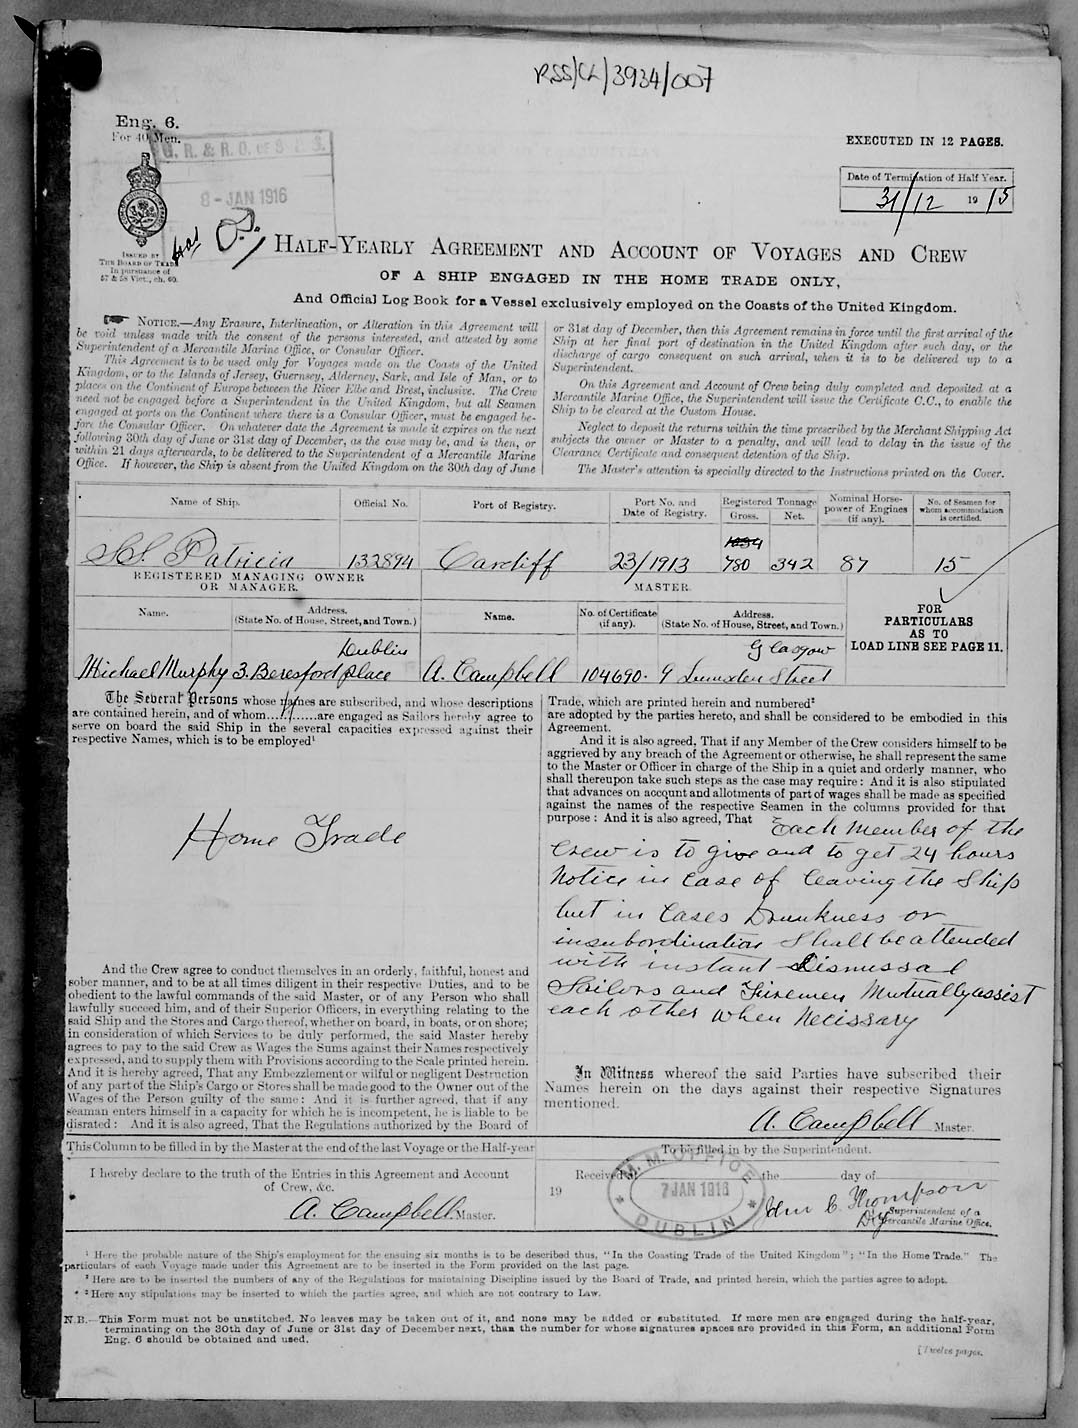 RSS/CL/3934/007
Eng. 6.
For 40 Men.
G. R. & R. O. OF S & S.
8 - JAN 1916
EXECUTED IN 12 PAGES.
Date of Termination of Half Year.
31/12 19 15
ISSUED BY
THE BOARD OF TRADE
In pursuance of
57 & 58 Vict., ch. 60.
HALF-YEARLY AGREEMENT AND ACCOUNT OF VOYAGES AND CREW
OF A SHIP ENGAGED IN THE HOME TRADE ONLY,
And Official Log Book for a Vessel exclusively employed on the Coasts of the United Kingdom.
NOTICE.—Any Erasure, Interlineation, or Alteration in this Agreement will
be void unless made with the consent of the persons interested, and attested by some
Superintendent of a Mercantile Marine Office, or Consular Officer.
This Agreement is to be used only for Voyages made on the Coasts of the United
Kingdom, or to the Islands of Jersey, Guernsey, Alderney, Sark, and Isle of Man, or to
places on the Continent of Europe between the River Elbe and Brest, inclusive. The Crew
need not be engaged before a Superintendent in the United Kingdom, but all Seamen
engaged at ports on the Continent where there is a Consular Officer, must be engaged be-
fore the Consular Officer. On whatever date the Agreement is made it expires on the next
following 30th day of June or 31st day of December, as the case may be, and is then, or
within 21 days afterwards, to be delivered to the Superintendent of a Mercantile Marine
Office. If however, the Ship is absent from the United Kingdom on the 30th day of June
or 31st day of December, then this Agreement remains in force until the first arrival of the
Ship at her final port of destination in the United Kingdom after such day, or the
discharge of cargo consequent on such arrival, when it is to be delivered up to a
Superintendent.
On this Agreement and Account of Crew being duly completed and deposited at a
Mercantile Marine Office, the Superintendent will issue the Certificate C.C., to enable the
Ship to be cleared at the Custom House.
Neglect to deposit the returns within the time prescribed by the Merchant Shipping Act
subjects the owner or Master to a penalty, and will lead to delay in the issue of the
Clearance Certificate and consequent detention of the Ship.
The Master's attention is specially directed to the Instructions printed on the Cover.
Name of Ship. Official No. Port of Registry. Port No. and Date of Registry. Registered Tonnage Gross. Net. Nominal Horse-power of Engines (if any). No. of Seamen for whom accommodation is certified.
SS. Patricia 132894 Cardiff 23/1913 780 342 87 15
REGISTERED MANAGING OWNER
OR MANAGER.
MASTER.
Name. Address. (State No. of House, Street, and Town.) Name. No. of Certificate (if any). Address. (State No. of House, Street, and Town.)
FOR
PARTICULARS
AS TO
LOAD LINE SEE PAGE 11.
Dublin Glasgow
Michael Murphy 3. Beresford place A. Campbell 104690. 9 Street
The Several Persons whose names are subscribed, and whose descriptions
are contained herein, and of whom 11 are engaged as Sailors hereby agree to
serve on board the said Ship in the several capacities expressed against their
respective Names, which is to be employed¹
Home Trade
And the Crew agree to conduct themselves in an orderly, faithful, honest and
sober manner, and to be at all times diligent in their respective Duties, and to be
obedient to the lawful commands of the said Master, or of any Person who shall
lawfully succeed him, and of their Superior Officers, in everything relating to the
said Ship and the Stores and Cargo thereof, whether on board, in boats, or on shore;
in consideration of which Services to be duly performed, the said Master hereby
agrees to pay to the said Crew as Wages the Sums against their Names respectively
expressed, and to supply them with Provisions according to the Scale printed herein.
And it is hereby agreed, That any Embezzlement or wilful or negligent Destruction
of any part of the Ship's Cargo or Stores shall be made good to the Owner out of the
Wages of the Person guilty of the same: And it is further agreed, that if any
Seaman enters himself in a capacity for which he is incompetent, he is liable to be
disrated: And it is also agreed, That the Regulations authorized by the Board of
Trade, which are printed herein and numbered²
are adopted by the parties hereto, and shall be considered to be embodied in this
Agreement.
And it is also agreed, That if any Member of the Crew considers himself to be
aggrieved by any breach of the Agreement or otherwise, he shall represent the same
to the Master or Officer in charge of the Ship in a quiet and orderly manner, who
shall thereupon take such steps as the case may require: And it is also stipulated
that advances on account and allotments of part of wages shall be made as specified
against the names of the respective Seamen in the columns provided for that
purpose: And it is also agreed, That Each Member of the
Crew is to give and to get 24 hours
Notice in Case of leaving the Ship
but in Cases Drunkness or
insubordination Shall be attended
with instant Dismissal
Sailors and Firemen Mutually assist
each other when Necissary
In Witness whereof the said Parties have subscribed their
Names herein on the days against their respective Signatures
mentioned.
A. Campbell Master.
This Column to be filled in by the Master at the end of the last Voyage or the Half-year
I hereby declare to the truth of the Entries in this Agreement and Account
of Crew, &c.
A. Campbell. Master.
To be filled in by the Superintendent.
Received at the day of
19
M. M. OFFICE
7 JAN 1916
DUBLIN
John C. Thompson
Dy Superintendent of a
Mercantile Marine Office.
¹ Here the probable nature of the Ship's employment for the ensuing six months is to be described thus, "In the Coasting Trade of the United Kingdom"; "In the Home Trade." The
particulars of each Voyage made under this Agreement are to be inserted in the Form provided on the last page.
² Here are to be inserted the numbers of any of the Regulations for maintaining Discipline issued by the Board of Trade, and printed herein, which the parties agree to adopt.
³ Here any stipulations may be inserted to which the parties agree, and which are not contrary to Law.
N.B.—This Form must not be unstitched. No leaves may be taken out of it, and none may be added or substituted. If more men are engaged during the half-year,
terminating on the 30th day of June or 31st day of December next, than the number for whose signatures spaces are provided in this Form, an additional Form
Eng. 6 should be obtained and used.
[Twelve pages.